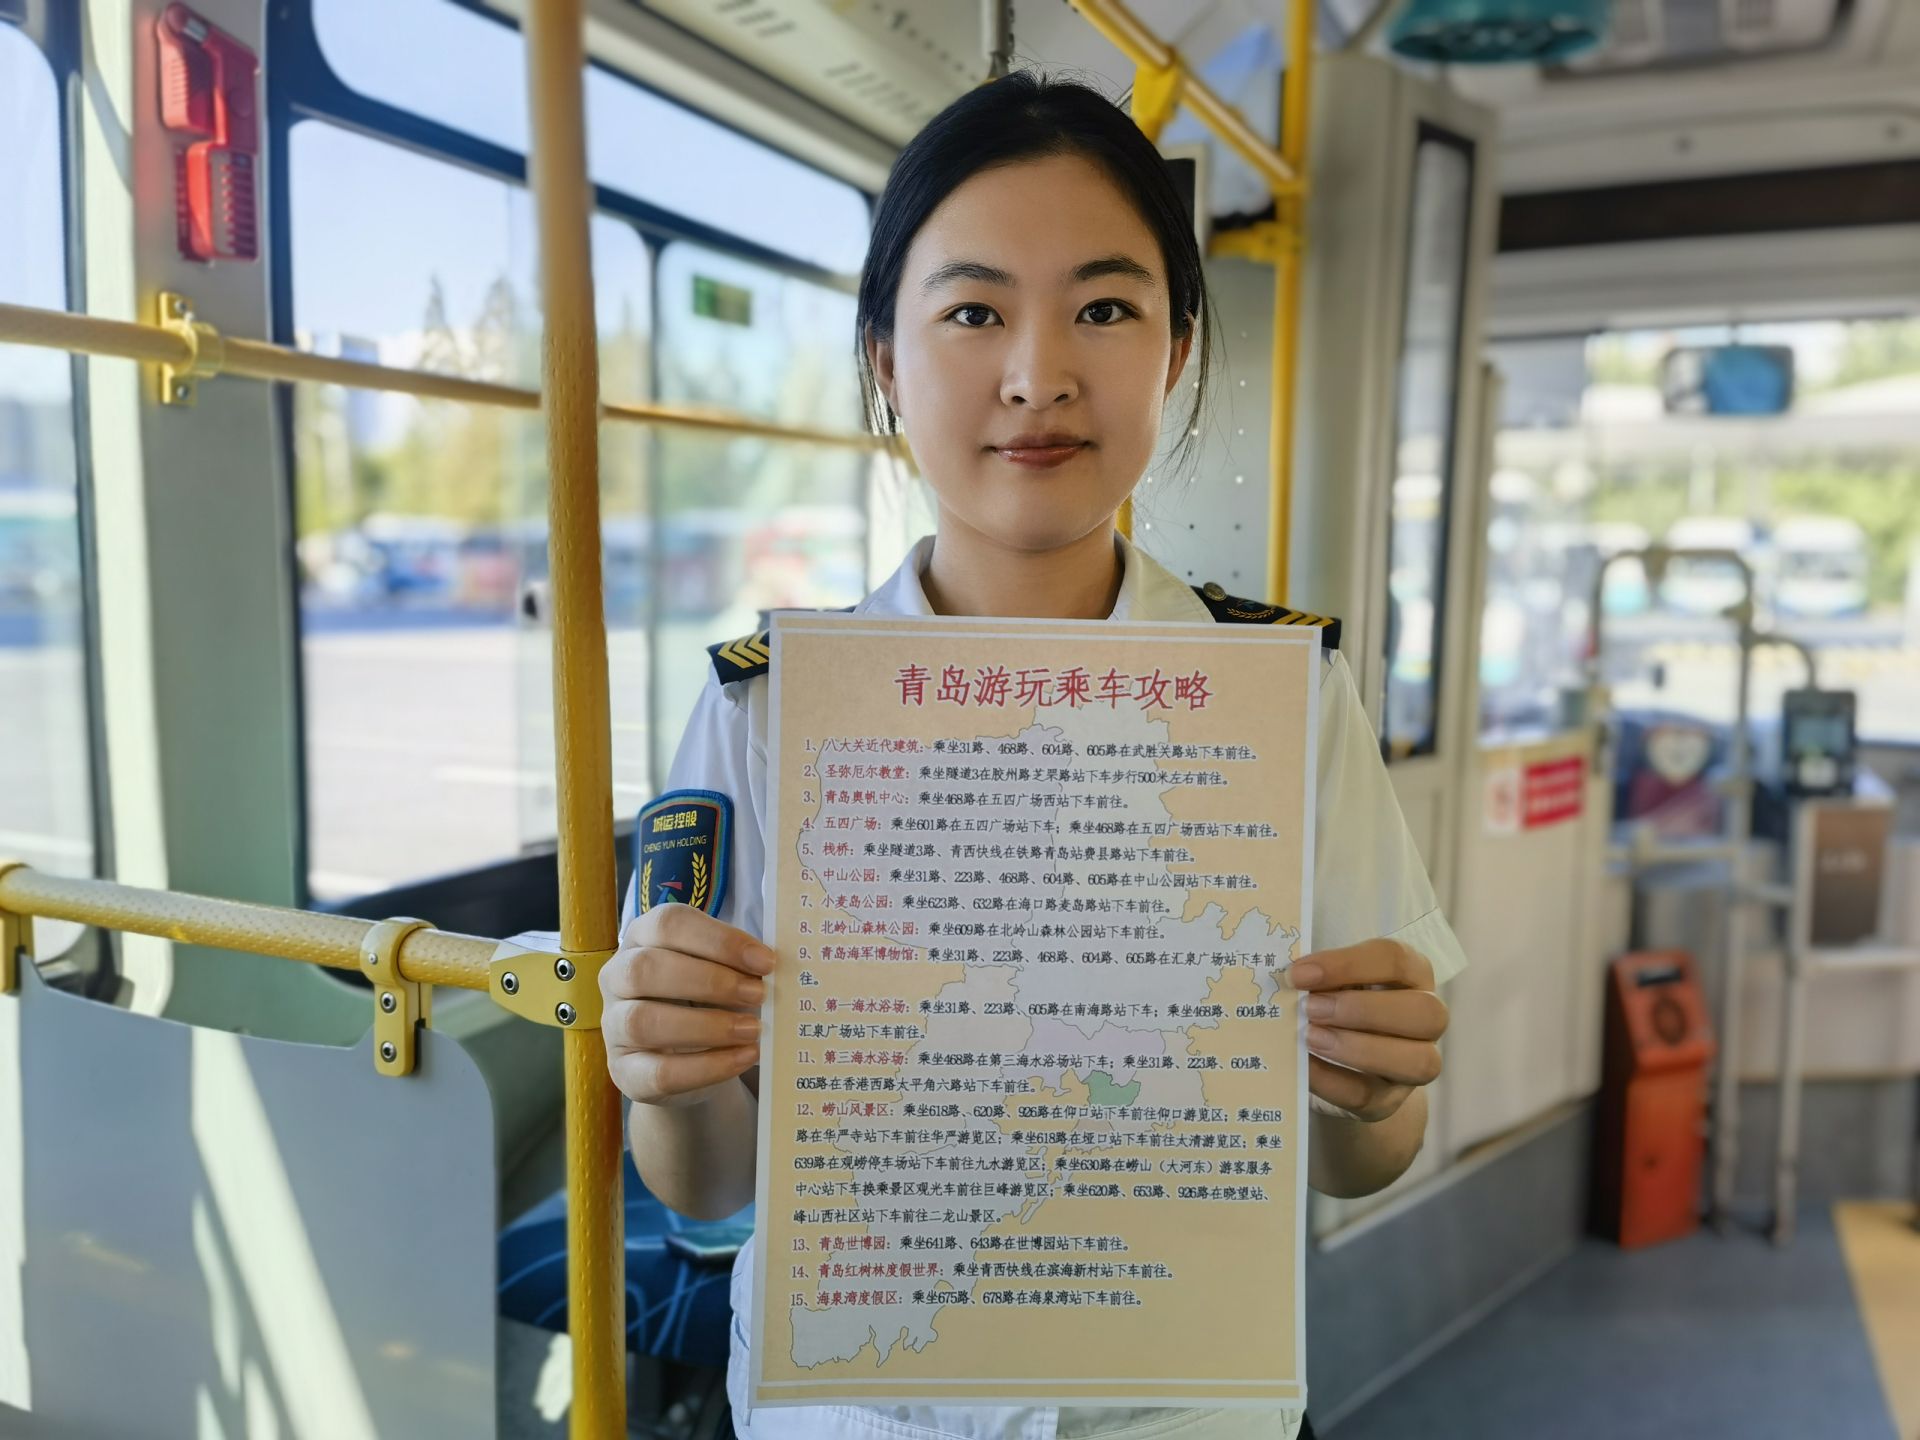 青岛游玩乘车攻略
1、八大关近代建筑：乘坐31路、468路、604路、605路在武胜关路站下车前往。
2、圣弥厄尔教堂：乘坐隧道3在胶州路芝罘路站下车步行500米左右前往。
3、青岛奥帆中心：乘坐468路在五四广场西站下车前往。
4、五四广场：乘坐601路在五四广场站下车；乘坐468路在五四广场西站下车前往。
5、栈桥：乘坐隧道3路、青西快线在铁路青岛站费县路站下车前往。
6、中山公园：乘坐31路、223路、468路、604路、605路在中山公园站下车前往。
7、小麦岛公园：乘坐623路、632路在海口路麦岛路站下车前往。
8、北岭山森林公园：乘坐609路在北岭山森林公园站下车前往。
9、青岛海军博物馆：乘坐31路、223路、468路、604路、605路在汇泉广场站下车前
往。
10、第一海水浴场：乘坐31路、223路、605路在南海路站下车；乘坐468路、604路在
汇泉广场站下车前往。
11、第三海水浴场：乘坐468路在第三海水浴场站下车；乘坐31路、223路、604路、
605路在香港西路太平角六路站下车前往。
12、崂山风景区：乘坐618路、620路、926路在仰口站下车前往仰口游览区；乘坐618
路在华严寺站下车前往华严游览区；乘坐618路在垭口站下车前往太清游览区；乘坐
639路在观崂停车场站下车前往九水游览区；乘坐630路在崂山（大河东）游客服务
中心站下车换乘景区观光车前往巨峰游览区；乘坐620路、653路、926路在晓望站、
峰山西社区站下车前往二龙山景区。
13、青岛世博园：乘坐641路、643路在世博园站下车前往。
14、青岛红树林度假世界：乘坐青西快线在滨海新村站下车前往。
15、海泉湾度假区：乘坐675路、678路在海泉湾站下车前往。
城运控股
CHENG YUN HOLDING